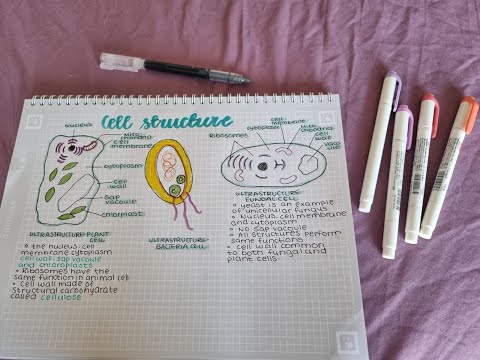 Cell structure
NUCLEUS
MITO-
CHONDRIA
CELL
MEMBRANE
CYTOPLASM
CELL
WALL
SAP
VACUOLE
CHLOROPLAST
ULTRASTRUCTURE-PLANT
CELL
• THE NUCLEUS, CELL
MEMBRANE CYTOPLASM
CELL WALL, SAP VACUOLE
AND CHLOROPLASTS
• RIBOSOMES HAVE THE
SAME FUNCTION IN ANIMAL CELL
• CELL WALL MADE OF
STRUCTURAL CARBOHYDRATE
CALLED CELLULOSE
ULTRASTRUCTURE-
BACTERIA CELL
RIBOSOMES
CYTOPLASM
CELL-
MEMBRANE
MITO-
CHONDRIA
CELL
WALL
VACUOLE
ULTRASTRUCTURE-
FUNGAL CELL
• YEAST IS AN EXAMPLE
OF UNICELLULAR FUNGUS
• NUCLEUS, CELL MEMBRANE
AND CYTOPLASM
• NO SAP VACUOLE
• ALL STRUCTURES PERFORM
SAME FUNCTIONS
• CELL WALL COMMON
TO BOTH FUNGAL AND
PLANT CELLS